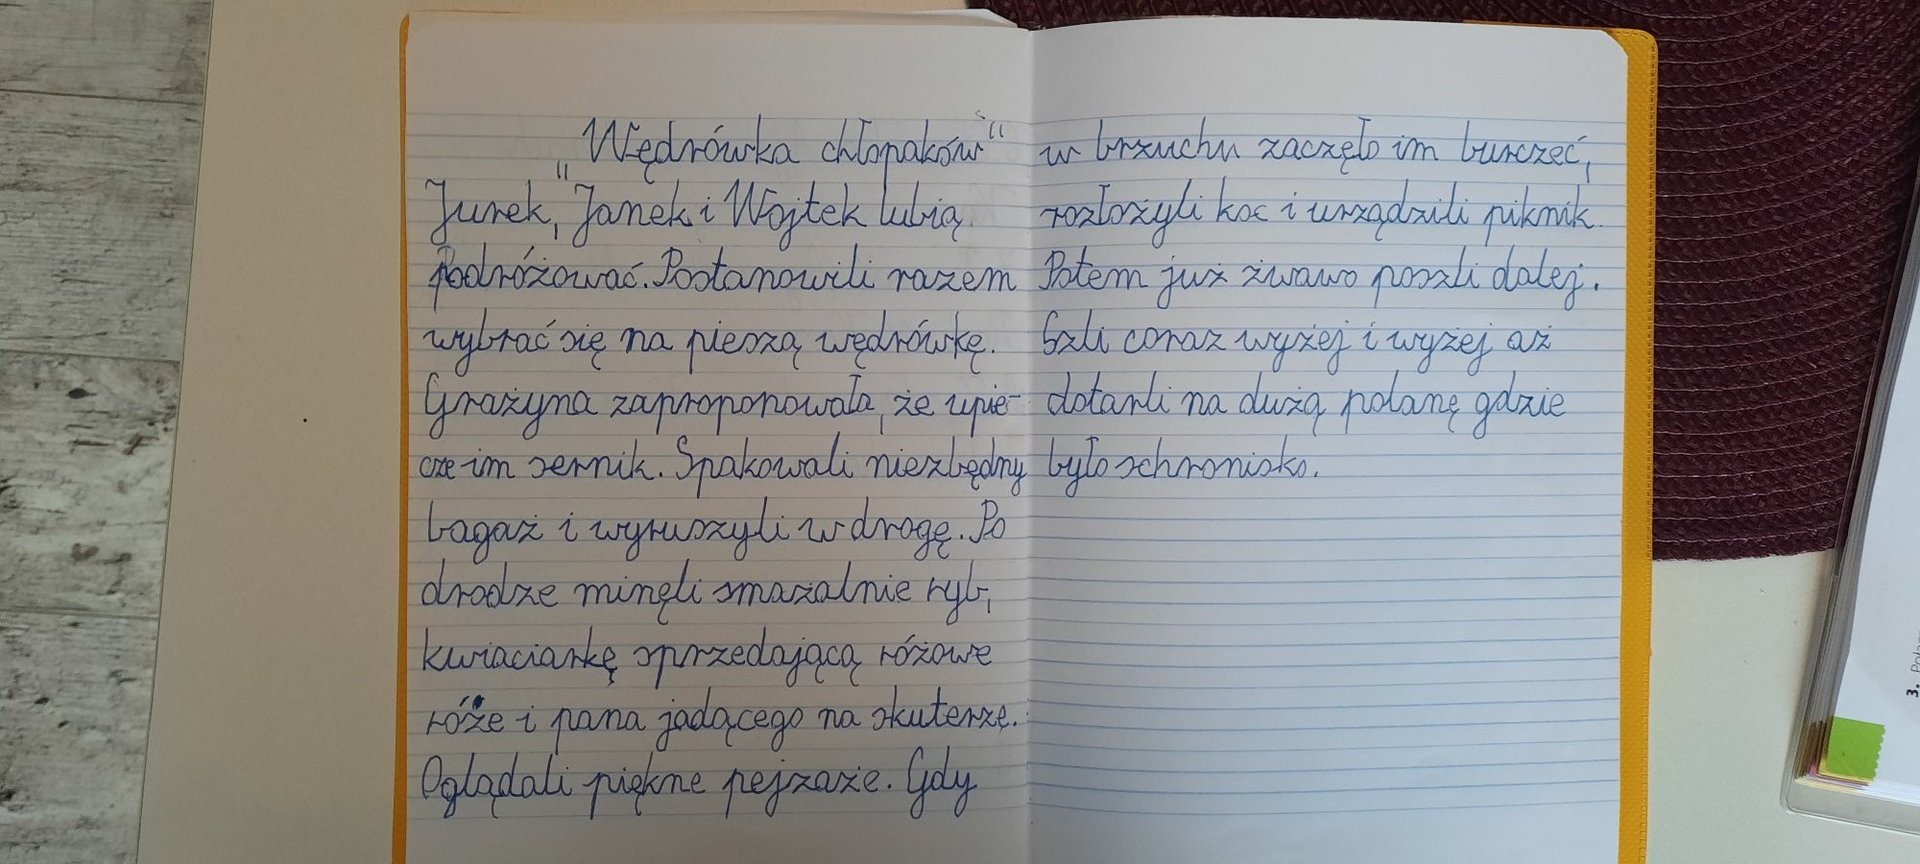 „Wędrówka chłopaków"
Jurek, Janek i Wojtek lubią
podróżować. Postanowili razem
wybrać się na pieszą wędrówkę.
Grażyna zaproponowała, że upie-
cze im sernik. Spakowali niezbędny
bagaż i wyruszyli w drogę. Po
drodze minęli smażalnie ryb,
kwiaciarkę sprzedającą różowe
róże i pana jadącego na skuterze.
Oglądali piękne pejzaże. Gdy
w brzuchu zaczęło im burczeć,
rozłożyli koc i urządzili piknik.
Potem już żwawo poszli dalej.
Szli coraz wyżej i wyżej aż
dotarli na dużą polanę gdzie
było schronisko.
3.